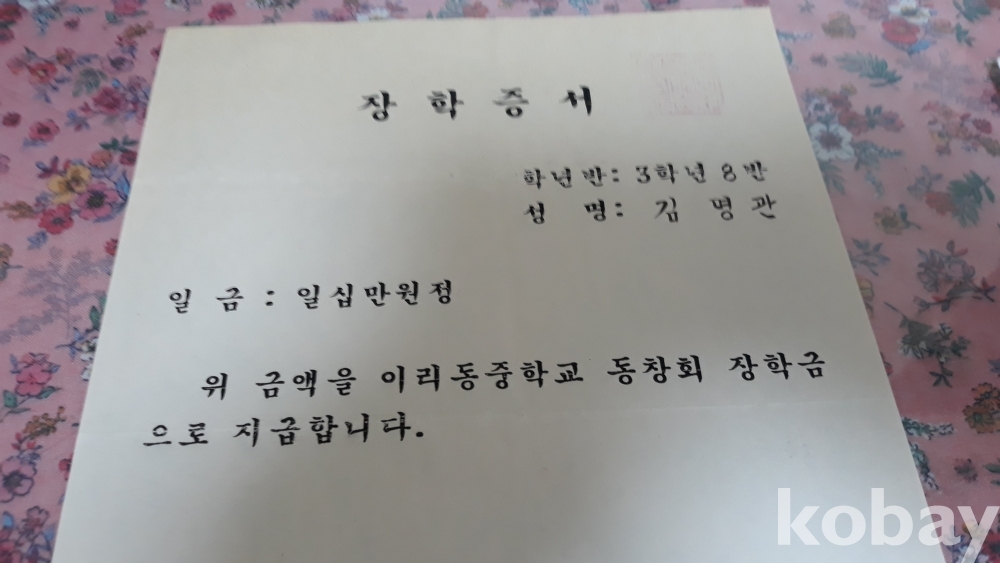 장 학 증 서
학년반: 3학년 8반
성 명: 김 명 관
일 금 : 일십만원정
위 금액을 이리동중학교 동창회 장학금
으로 지급합니다.
kobay